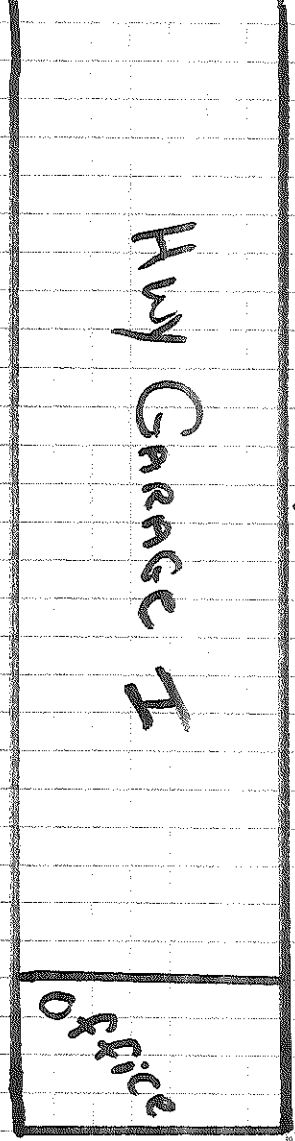 Hwy GARAGE I
Office